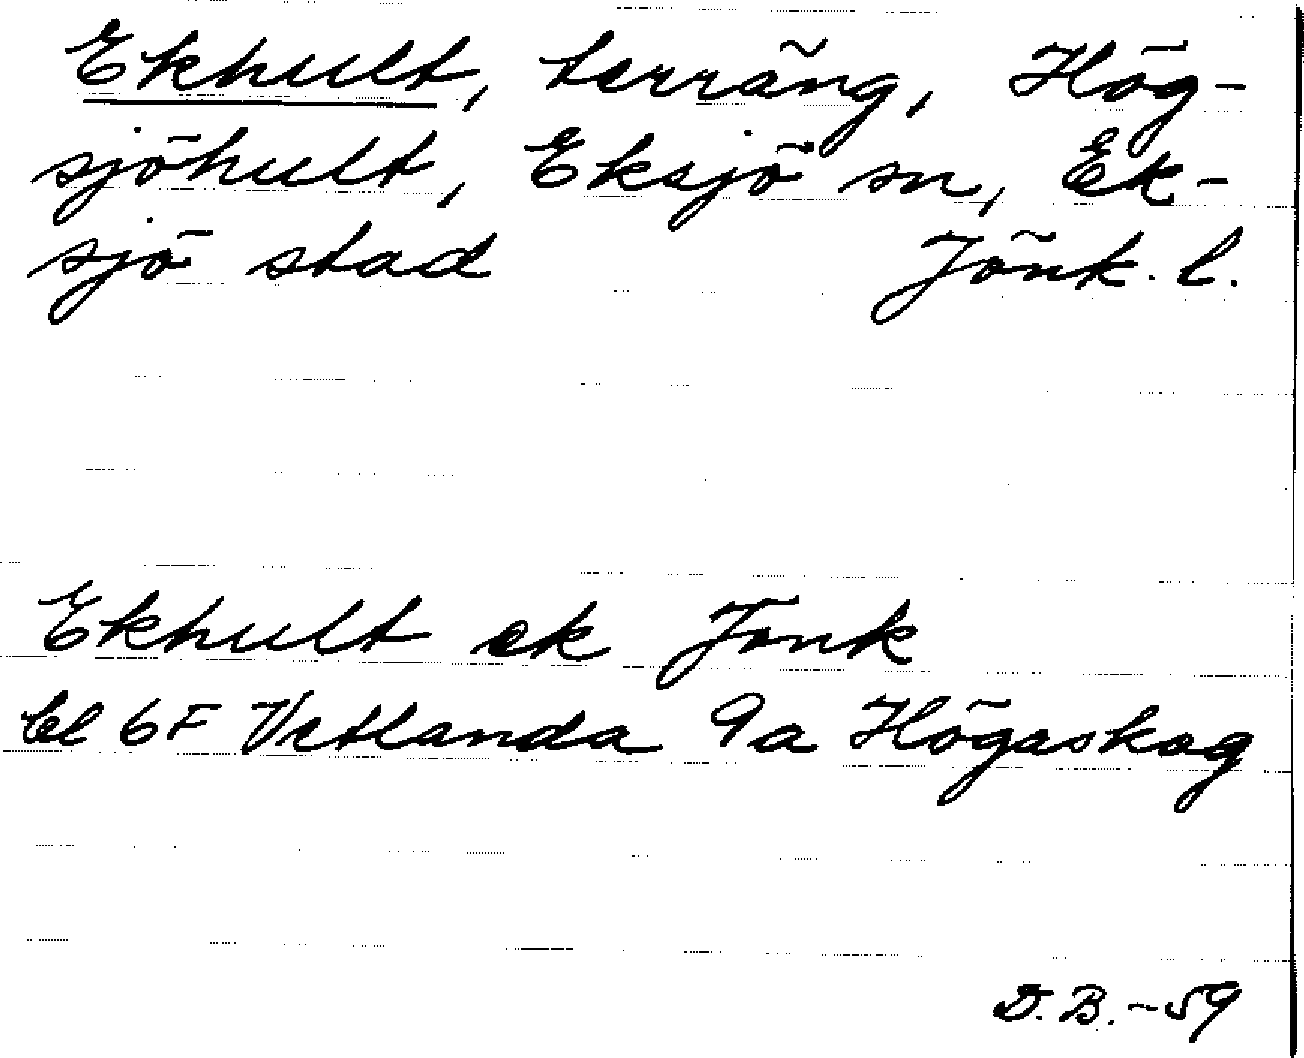 Ekhult, terräng, Hög-
sjöhult, Eksjö sn, Ek-
sjö stad Jönk. l.
Ekhult ek Jönk
bl 6F Vetlanda 9a Högaskog
D. B. -59